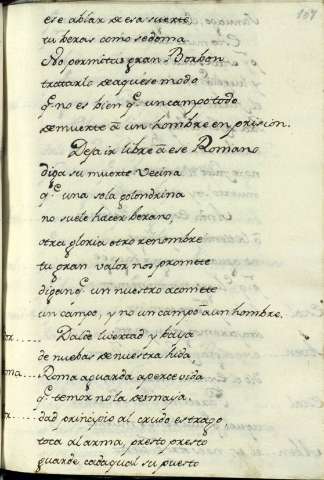 107
ese abias de esa suerte,
tu beras como se doma
No permitas gran Borbon
tratarlo de aquese modo
q.e no es bien q.e un campo todo
de muerte á un hombre en prision.
Deja ir libre á ese Romano
diga su muerte Vecina
q.e una sola golondrina
no suele hacer berano,
otra gloria otro renombre
tu gran valor nos promete
digan q.e un nuestro acomete
un campo, y no un campo á un hombre.
Dalde livertad y baya
de nuebas de nuestra hida,
Roma aguarda apercevida
q.e temor no la desmaya.
dad principio al crudo estrago
toca al arma, presto presto
guarde cada qual su puesto